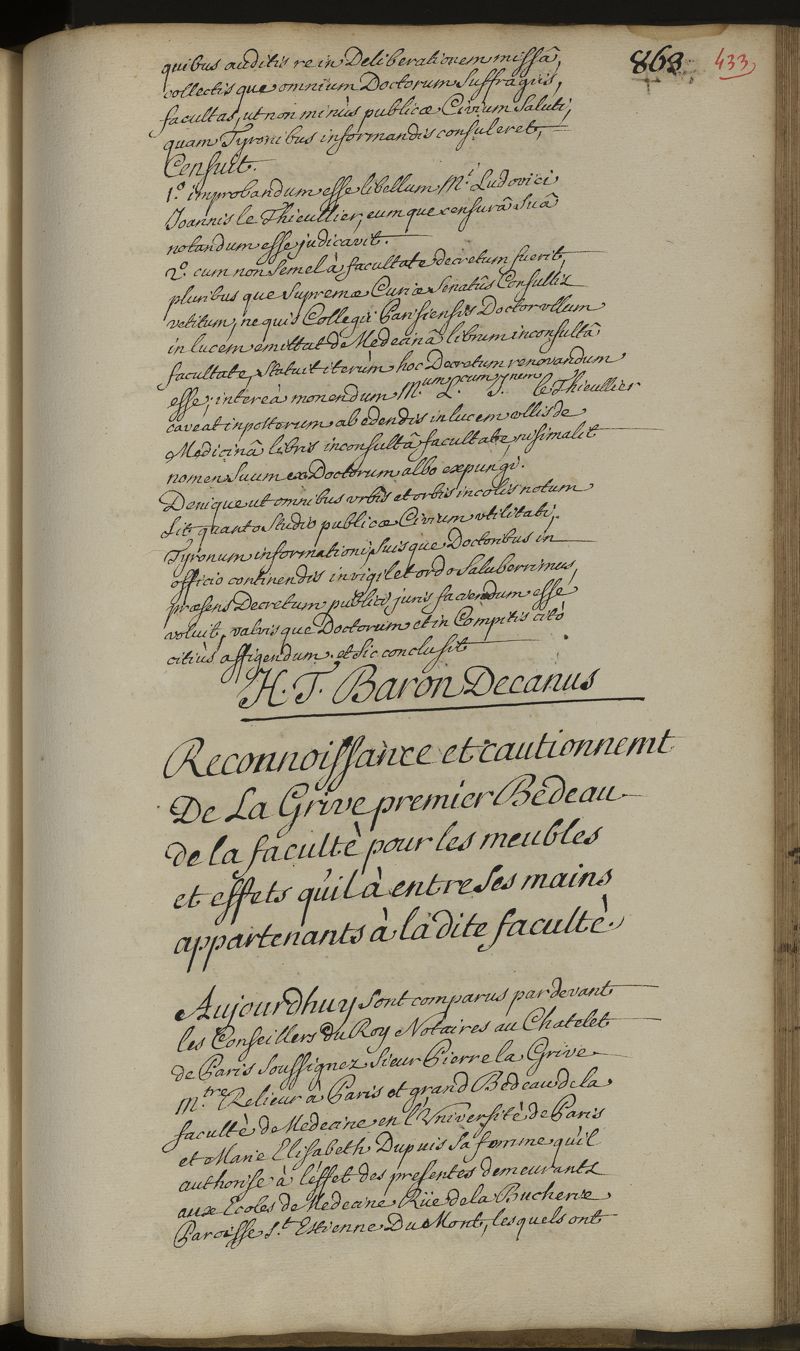 863 433
quibus auditis re in Deliberationem missâ,
collectisque omnium Doctorum Suffragiis,
facultas, ut non minùs publicæ Civium Saluti,
quam Tyronibus informandis consuleret,
Censuit.
1.º improbandum esse libellum M.i Ludovici
Joannis le Thieullier, eumque censurâ Suâ
notandum esse judicavit.
2.º cum non Semel à facultate decretum fuerit,
pluribusque Supremæ Curiæ Senatûs Consultis
vetitum, ne quis Collegii Parisiensis Doctor ullum
in lucem emittat de Medecinâ librum inconsultâ
facultate, Statuit iterùm hoc Decretum renovandum
esse; intereà monendum M.um L.cum J.nem le Thieullier
caveat inposterum ab edendis in lucem ullis de
Medicinâ libris inconsultâ facultate, nisi malit
nomen Suum ex Doctorum albo expungi.
Denique ut omnibus urbis et orbis incolis notum
Sit quanto Studio publicæ Civium utilitati,
Tyronum informationi, Suisque Doctoribus in
officio continendis invigilet ordo Saluberrimus,
præsens Decretum publici juris faciendum esse
voluit, valvisque Doctorum et in Compitis citò
citiùs affigendum. et Sic conclusit
H. T. Baron Decanus
Reconnoissance et cautionnemt
De La Grive premier Bedeau
de la facultè pour les meubles
et effets qu'il à entre Ses mains
appartenants à ladite facultè.
Aujourdhuy Sont comparus pardevant
les Conseillers du Roy Notaires au Chatelet
de Paris Soussignez Sieur Pierre la Grive
M.tre Relieur à Paris et grand Bedeau de la
facultè de Medecine en l'Université de Paris
et Marie Elisabeth Dupuis Sa femme qu'il
authorise à l'effet des presentes demeurants
aux Ecoles de Medecine Rüe de la Bucherie
Paroisse S.t Estienne Du Mont, lesquels ont